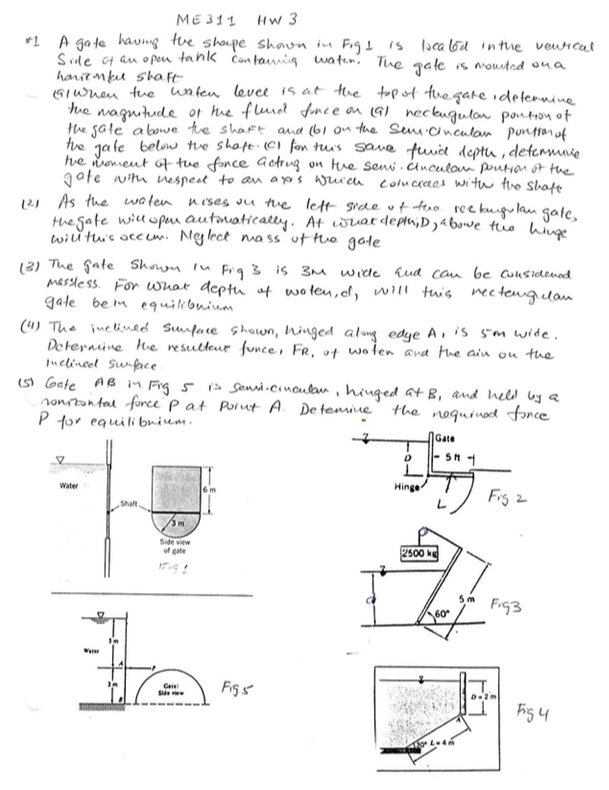 ME311 HW 3
#1 A gate having the shape shown in Fig 1 is located in the vertical
Side of an open tank containing water. The gate is mounted on a
horizontal shaft
(a) When the water level is at the top of the gate, determine
the magnitude of the fluid force on (a) rectangular portion of
the gate above the shaft and (b) on the Semi-circular portion of
the gate below the shaft. (c) for this same fluid depth, determine
the moment of the force acting on the semi-circular portion of the
gate with respect to an axis which coincides with the shaft
(2) As the water rises on the left side of the rectangular gate,
the gate will open automatically. At what depth, D, above the hinge
will this occur. Neglect mass of the gate
(3) The gate Shown in Fig 3 is 3m wide and can be considered
massless. For what depth of water, d, will this rectangular
gate be in equilibrium
(4) The inclined Surface shown, hinged along edge A, is 5m wide.
Determine the resultant force, FR, of water and the air on the
inclined Surface
(5) Gate AB in Fig 5 is semi-circular, hinged at B, and held by a
horizontal force P at Point A. Determine the required force
P for equilibrium.
Water
Shaft
6 m
3 m
Side view
of gate
Fig 1
Gate
D
5 ft
Hinge
L
Fig 2
2500 kg
d
5 m
60°
Fig 3
Water
3 m
A
P
3 m
B
Gate:
Side view
Fig 5
D = 2 m
A
30°
L = 4 m
Fig 4